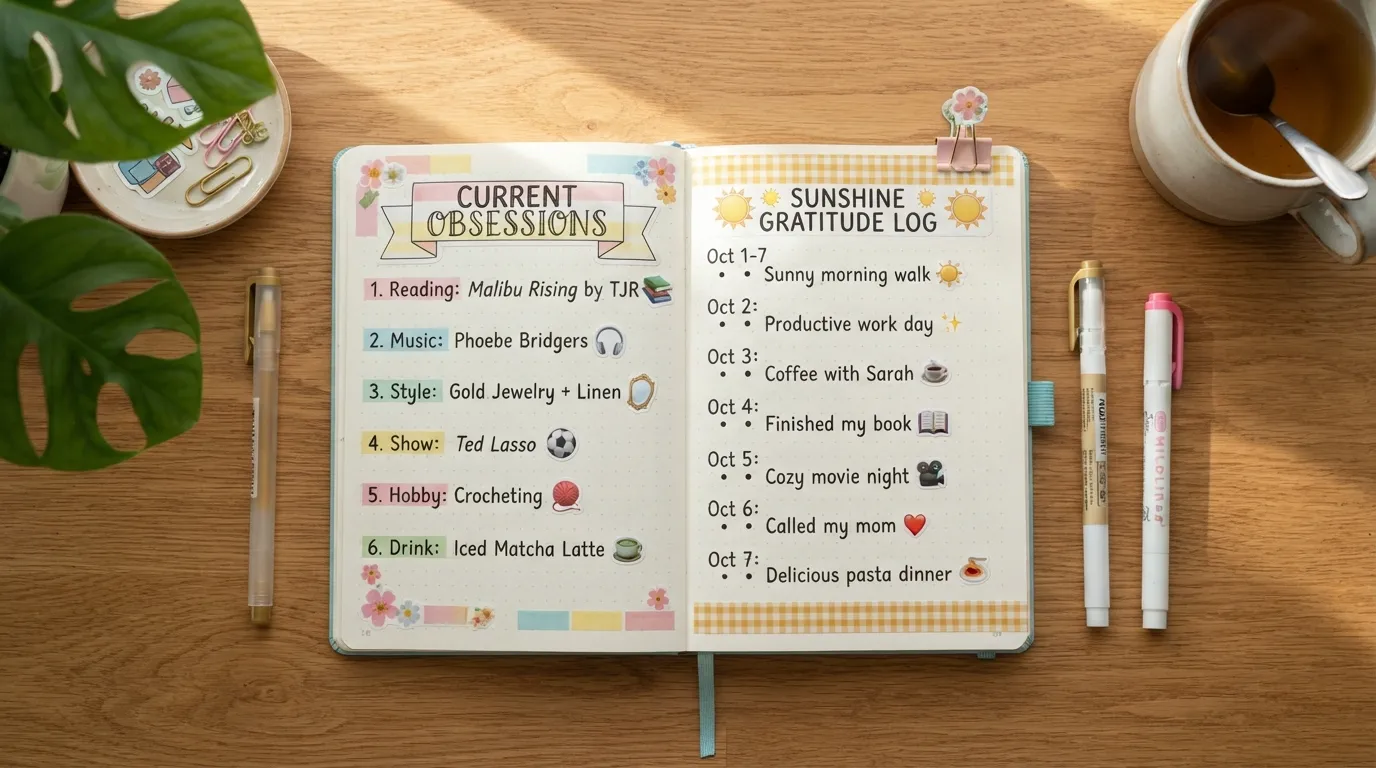 CURRENT
OBSESSIONS
1. Reading: Malibu Rising by TJR
2. Music: Phoebe Bridgers
3. Style: Gold Jewelry + Linen
4. Show: Ted Lasso
5. Hobby: Crocheting
6. Drink: Iced Matcha Latte
SUNSHINE
GRATITUDE LOG
Oct 1-7
• • Sunny morning walk
Oct 2:
• • Productive work day
Oct 3:
• • Coffee with Sarah
Oct 4:
• • Finished my book
Oct 5:
• • Cozy movie night
Oct 6:
• • Called my mom
Oct 7:
• • Delicious pasta dinner